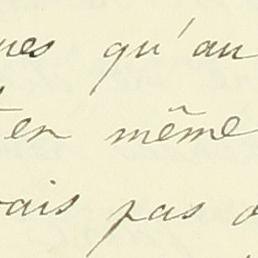 ues qu'au
en même
vais pas d